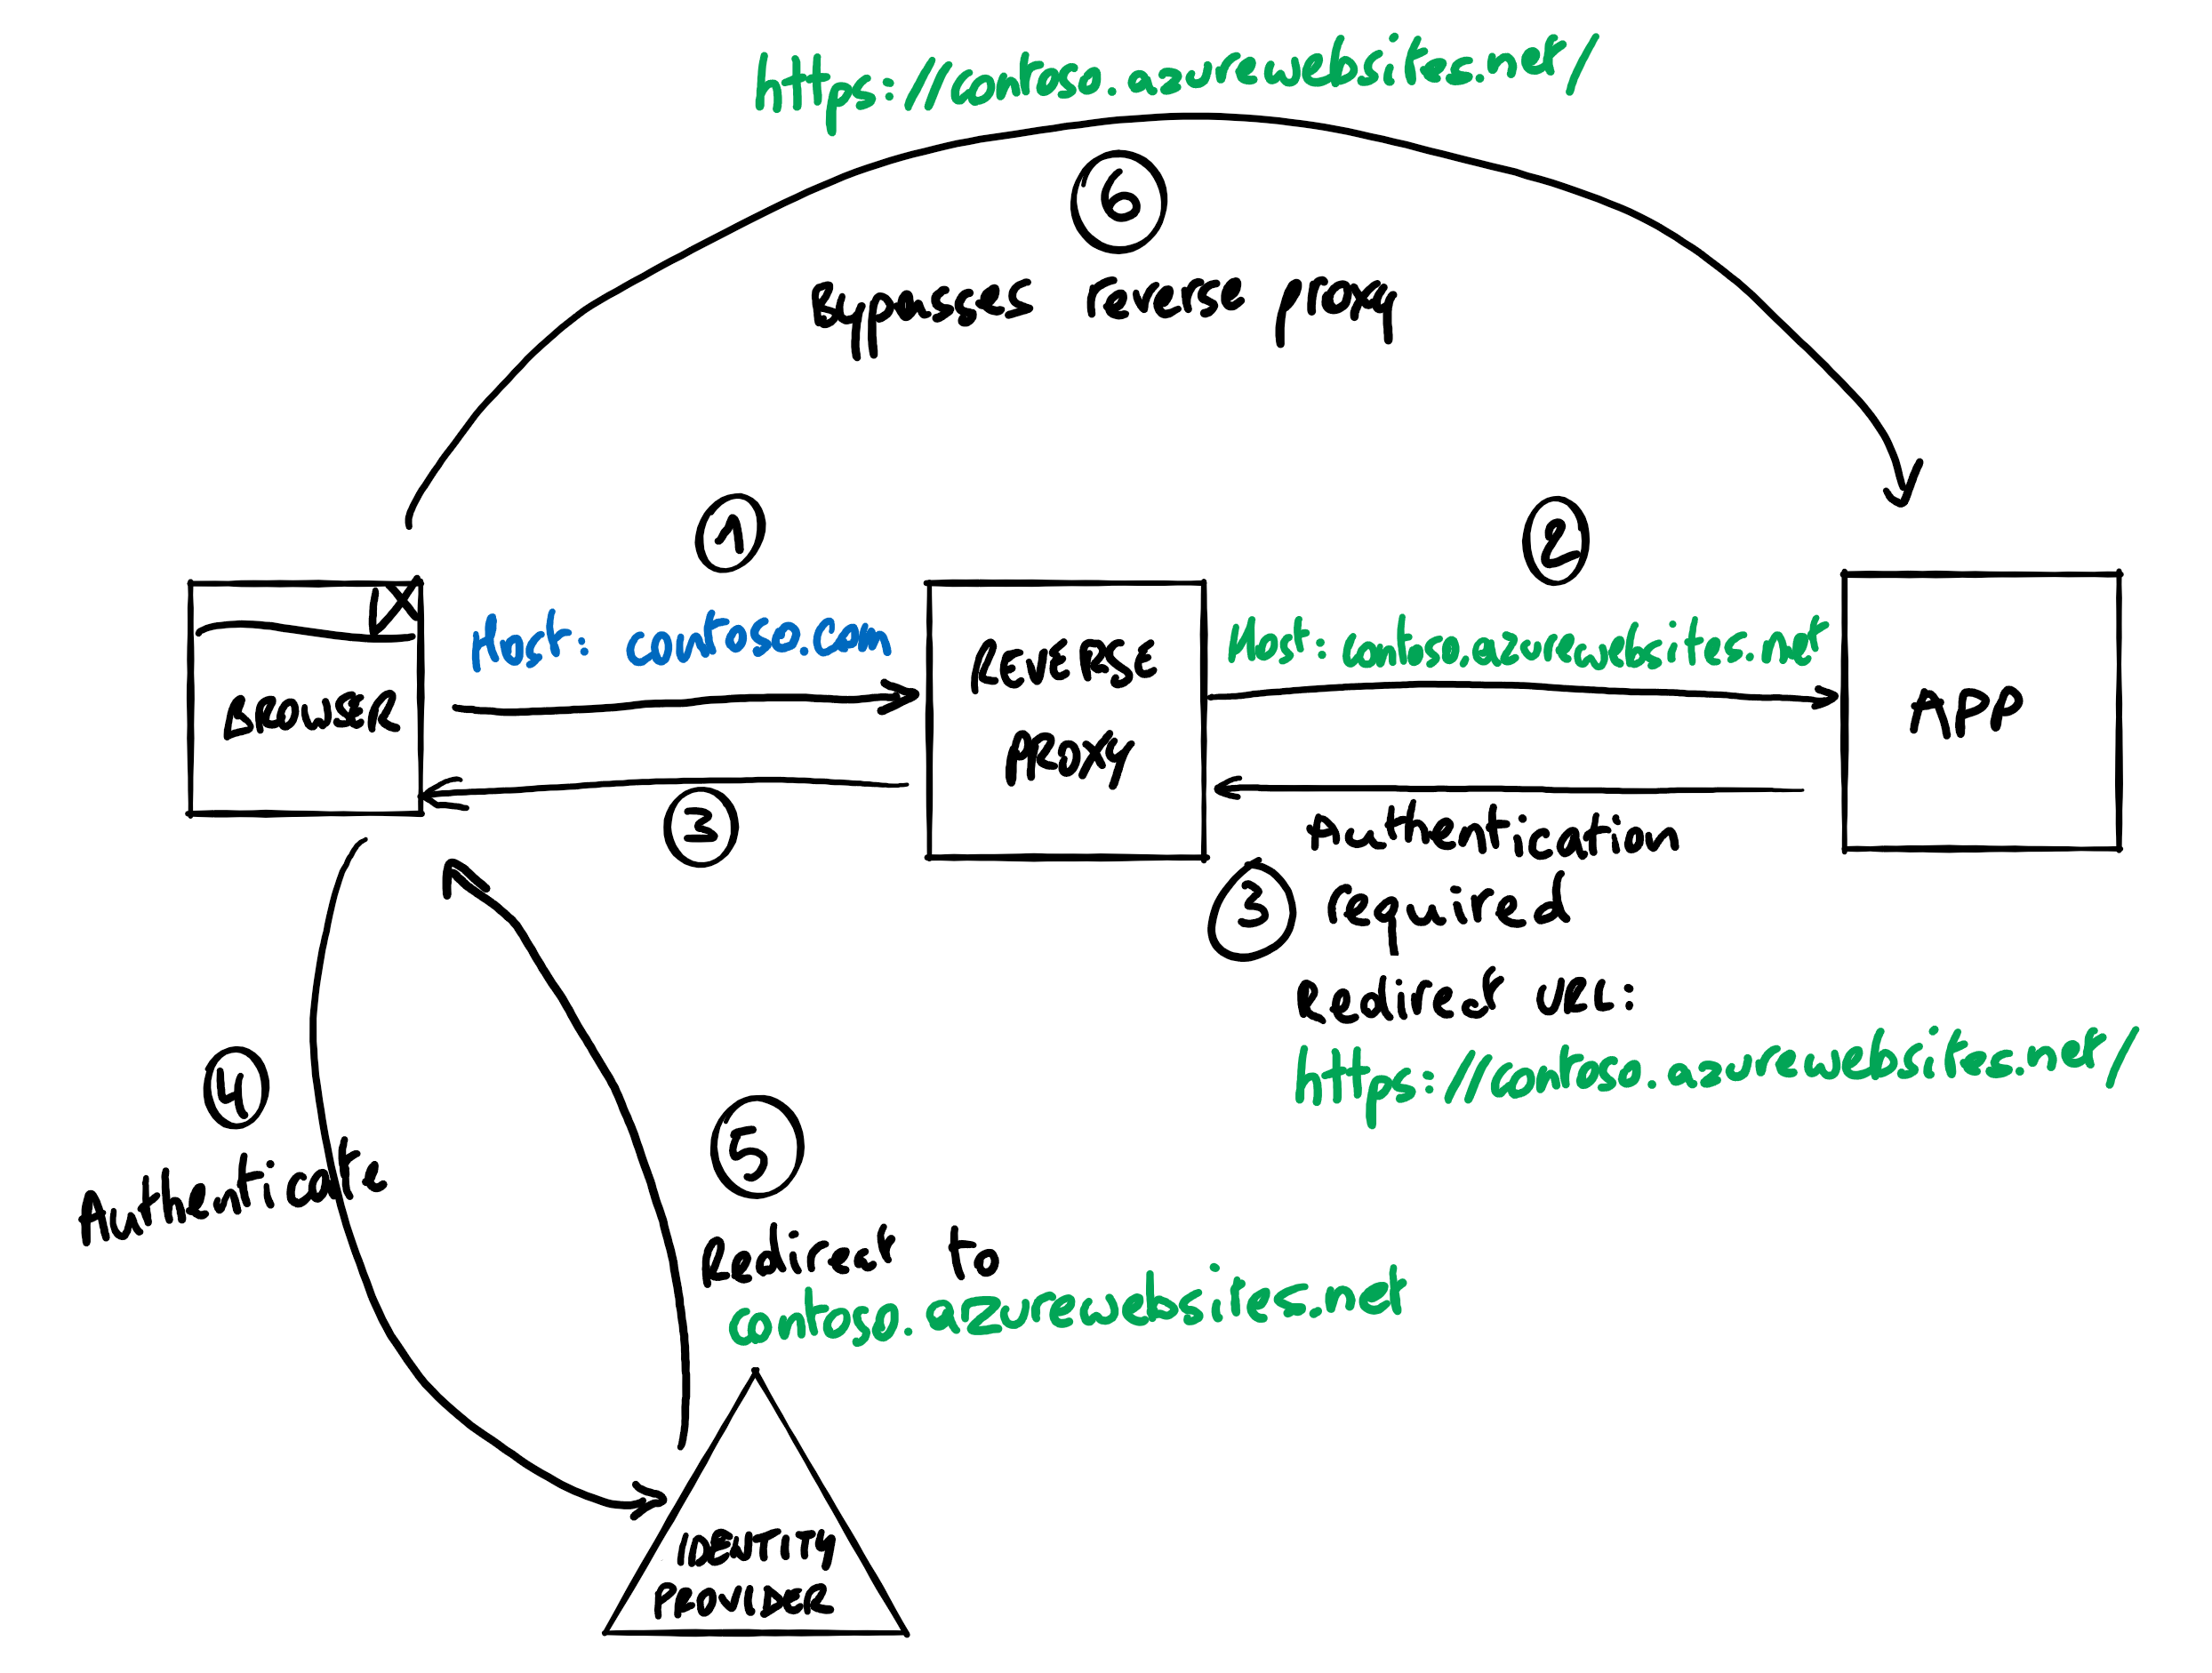 https://contoso.azurewebsites.net/
6
Bypasses reverse proxy
1
2
Host: contoso.com
Host: contoso.azurewebsites.net
BROWSER
REVERSE
PROXY
APP
3
Authentication
3
required
Redirect URL:
https://contoso.azurewebsites.net/
4
Authenticate
5
Redirect to
contoso.azurewebsites.net
IDENTITY
PROVIDER